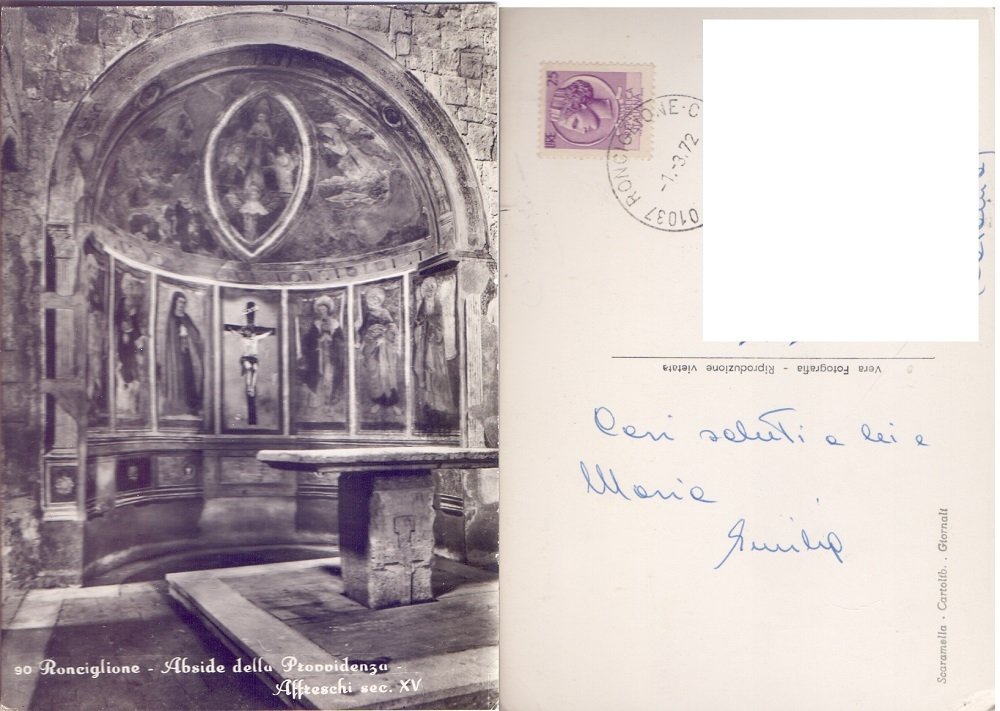 90 Ronciglione - Abside della Provvidenza -
Affreschi sec. XV
LIRE 25
REPUBBLICA
ITALIANA
01037 RONCIGLIONE-C
-7.-3.72
Vera Fotografia - Riproduzione vietata
Cari saluti a lei e
Maria
Emilia
Scaramella - Cartolib. . Giornali